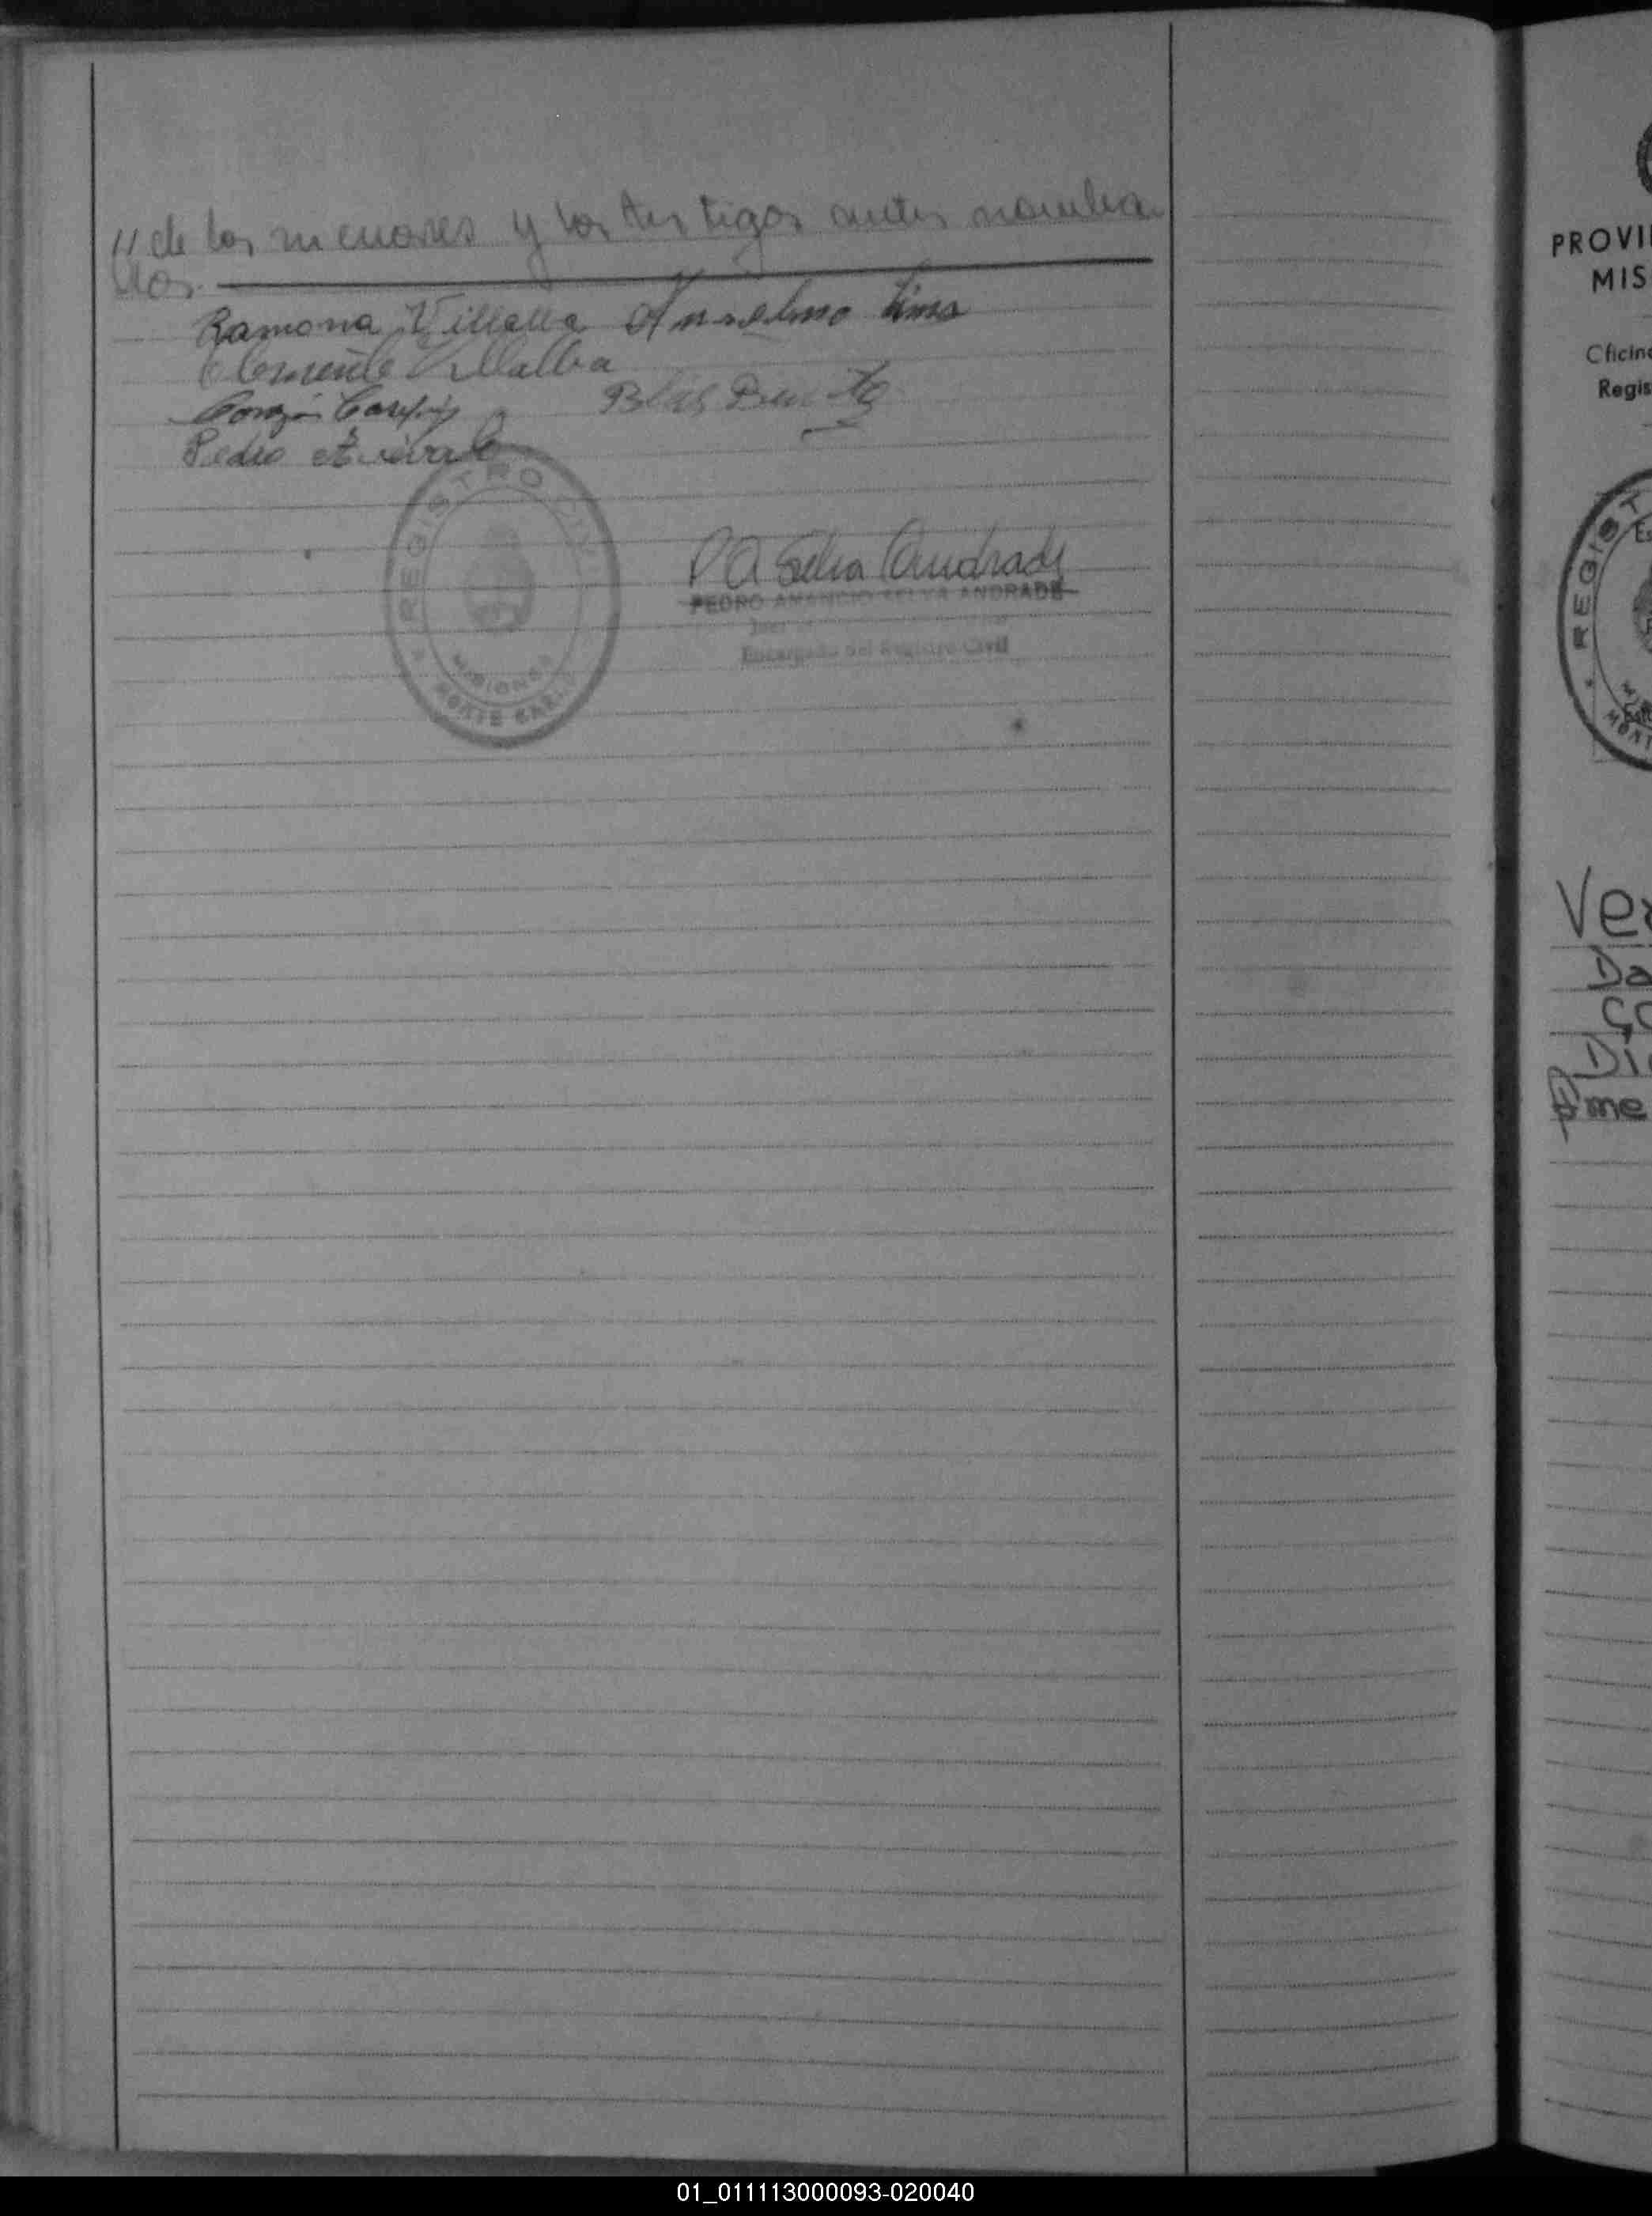 // de los menores y los testigos antes nombra
dos.
Ramona Villalba Anselmo Lima
Clemente Villalba
Blas Benitez
Pedro
REGISTRO CIVIL
MISIONES
MONTE CARLO
P A Selva Andrade
PEDRO AMANCIO SELVA ANDRADE
Juez
Encargado del Registro Civil
PROVI
MIS
Oficin
Regis
REGIST
MONT
Ve
Da
Di
Ame
01_011113000093-020040